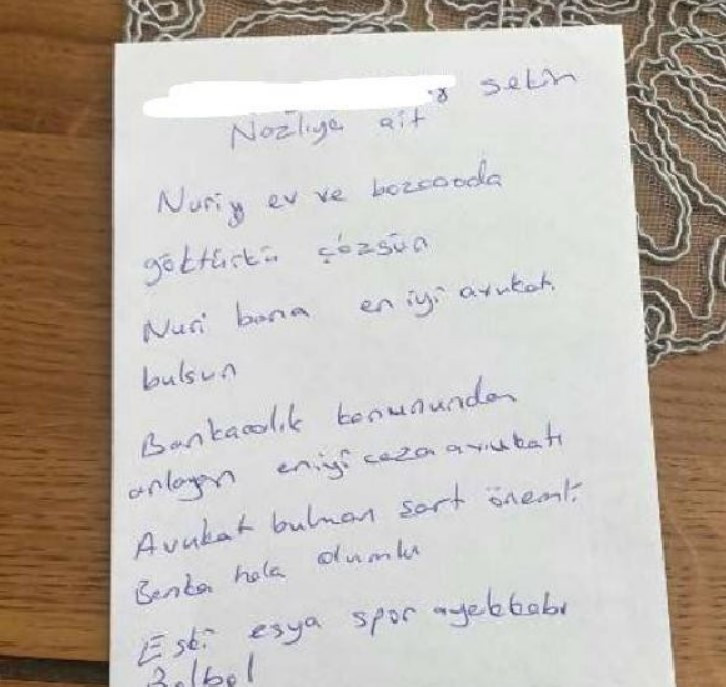 sekin
Nazlıya ait
Nuriy ev ve bozcaada
göktürkü çözsün
Nuri bana en iyi avukatı
bulsun
Bankacılık kanunundan
anlayan en iyi ceza avukatı
Avukat bulman şart önemli
Banka hala olumlu
Eski eşya spor ayakkabı
Bolbol